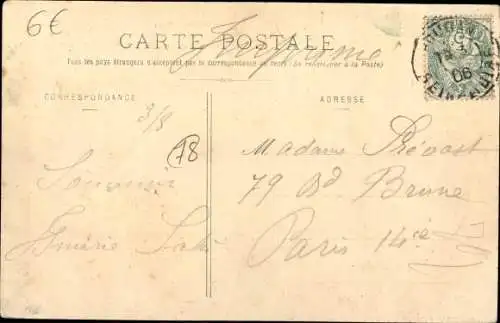 6€
CARTE POSTALE
Imprimé
Tous les pays étrangers n'acceptent pas la correspondance au recto (Se renseigner à la Poste)
CORRESPONDANCE
ADRESSE
78
Souvenir
Madame Prévost
79 Bd Brune
Paris 14e
06